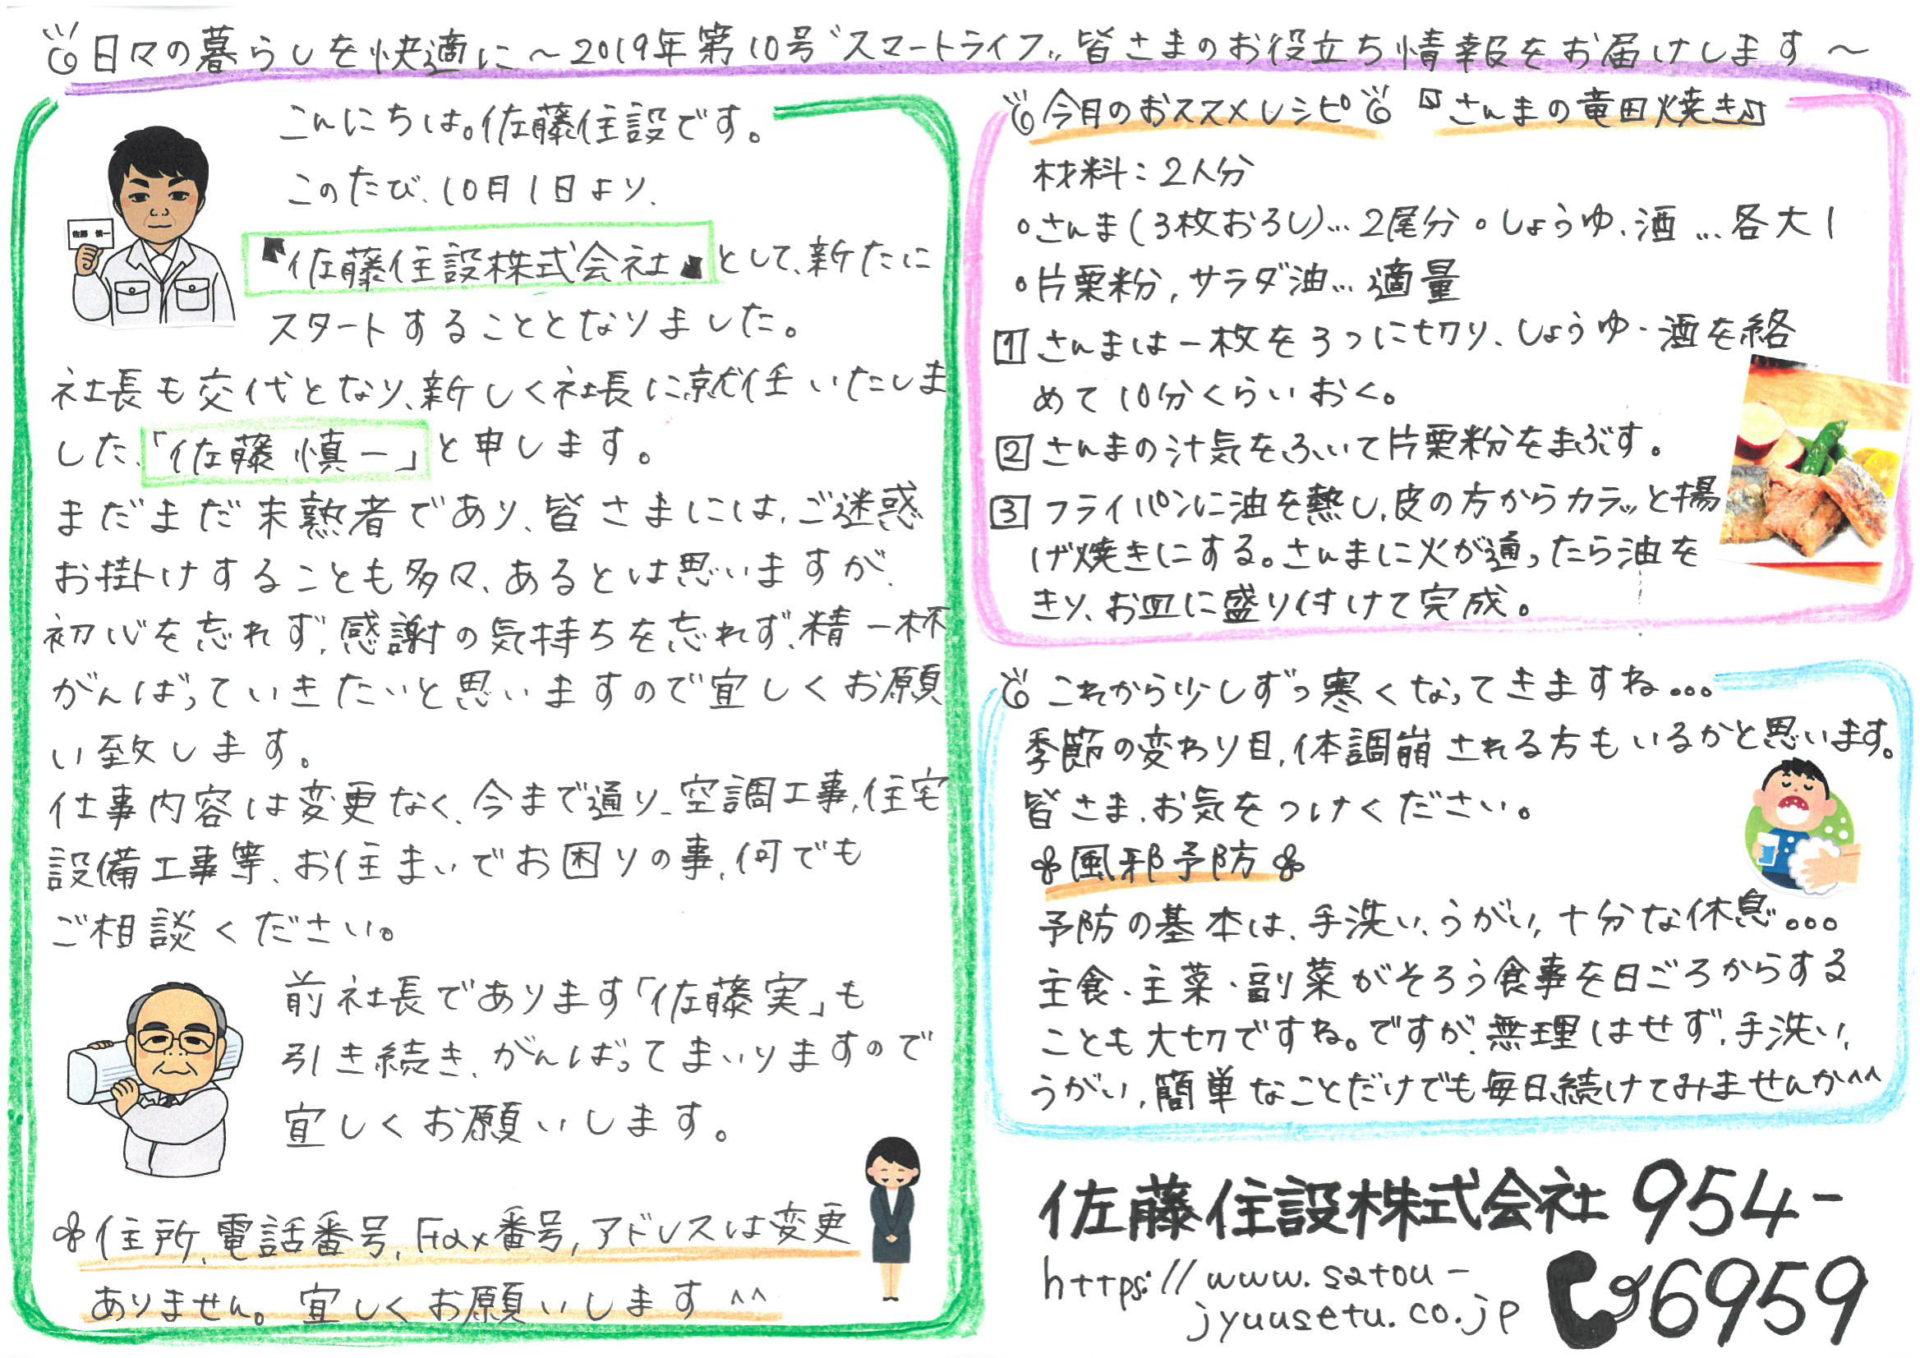 日々の暮らしを快適に～2019年第10号〝スマートライフ〟皆さまのお役立ち情報をお届けします～
こんにちは。佐藤住設です。
このたび、10月1日より、
『佐藤住設株式会社』として、新たに
スタートすることとなりました。
社長も交代となり、新しく社長に就任いたしま
した、「佐藤慎一」と申します。
まだまだ未熟者であり、皆さまには、ご迷惑
お掛けすることも多々、あるとは思いますが、
初心を忘れず、感謝の気持ちを忘れず、精一杯
がんばっていきたいと思いますので宜しくお願
い致します。
仕事内容は変更なく、今まで通り、空調工事、住宅
設備工事等、お住まいでお困りの事、何でも
ご相談ください。
前社長であります「佐藤実」も
引き続き、がんばってまいりますので
宜しくお願いします。
住所、電話番号、Fax番号、アドレスは変更
ありません。宜しくお願いします^^
佐藤 慎一
今月のおススメレシピ 『さんまの竜田焼き』
材料：2人分
○さんま(3枚おろし)…2尾分 ○しょうゆ、酒…各大1
○片栗粉、サラダ油…適量
1 さんまは一枚を3つに切り、しょうゆ・酒を絡
めて10分くらいおく。
2 さんまの汁気をふいて片栗粉をまぶす。
3 フライパンに油を熱し、皮の方からカラッと揚
げ焼きにする。さんまに火が通ったら油を
きり、お皿に盛り付けて完成。
これから少しずつ寒くなってきますね...
季節の変わり目、体調崩される方もいるかと思います。
皆さま、お気をつけください。
風邪予防
予防の基本は、手洗い、うがい、十分な休息...
主食・主菜・副菜がそろう食事を日ごろからする
ことも大切ですね。ですが、無理はせず、手洗い、
うがい、簡単なことだけでも毎日続けてみませんか^^
佐藤住設株式会社 954-
6959
https://www.satou-
jyuusetu.co.jp